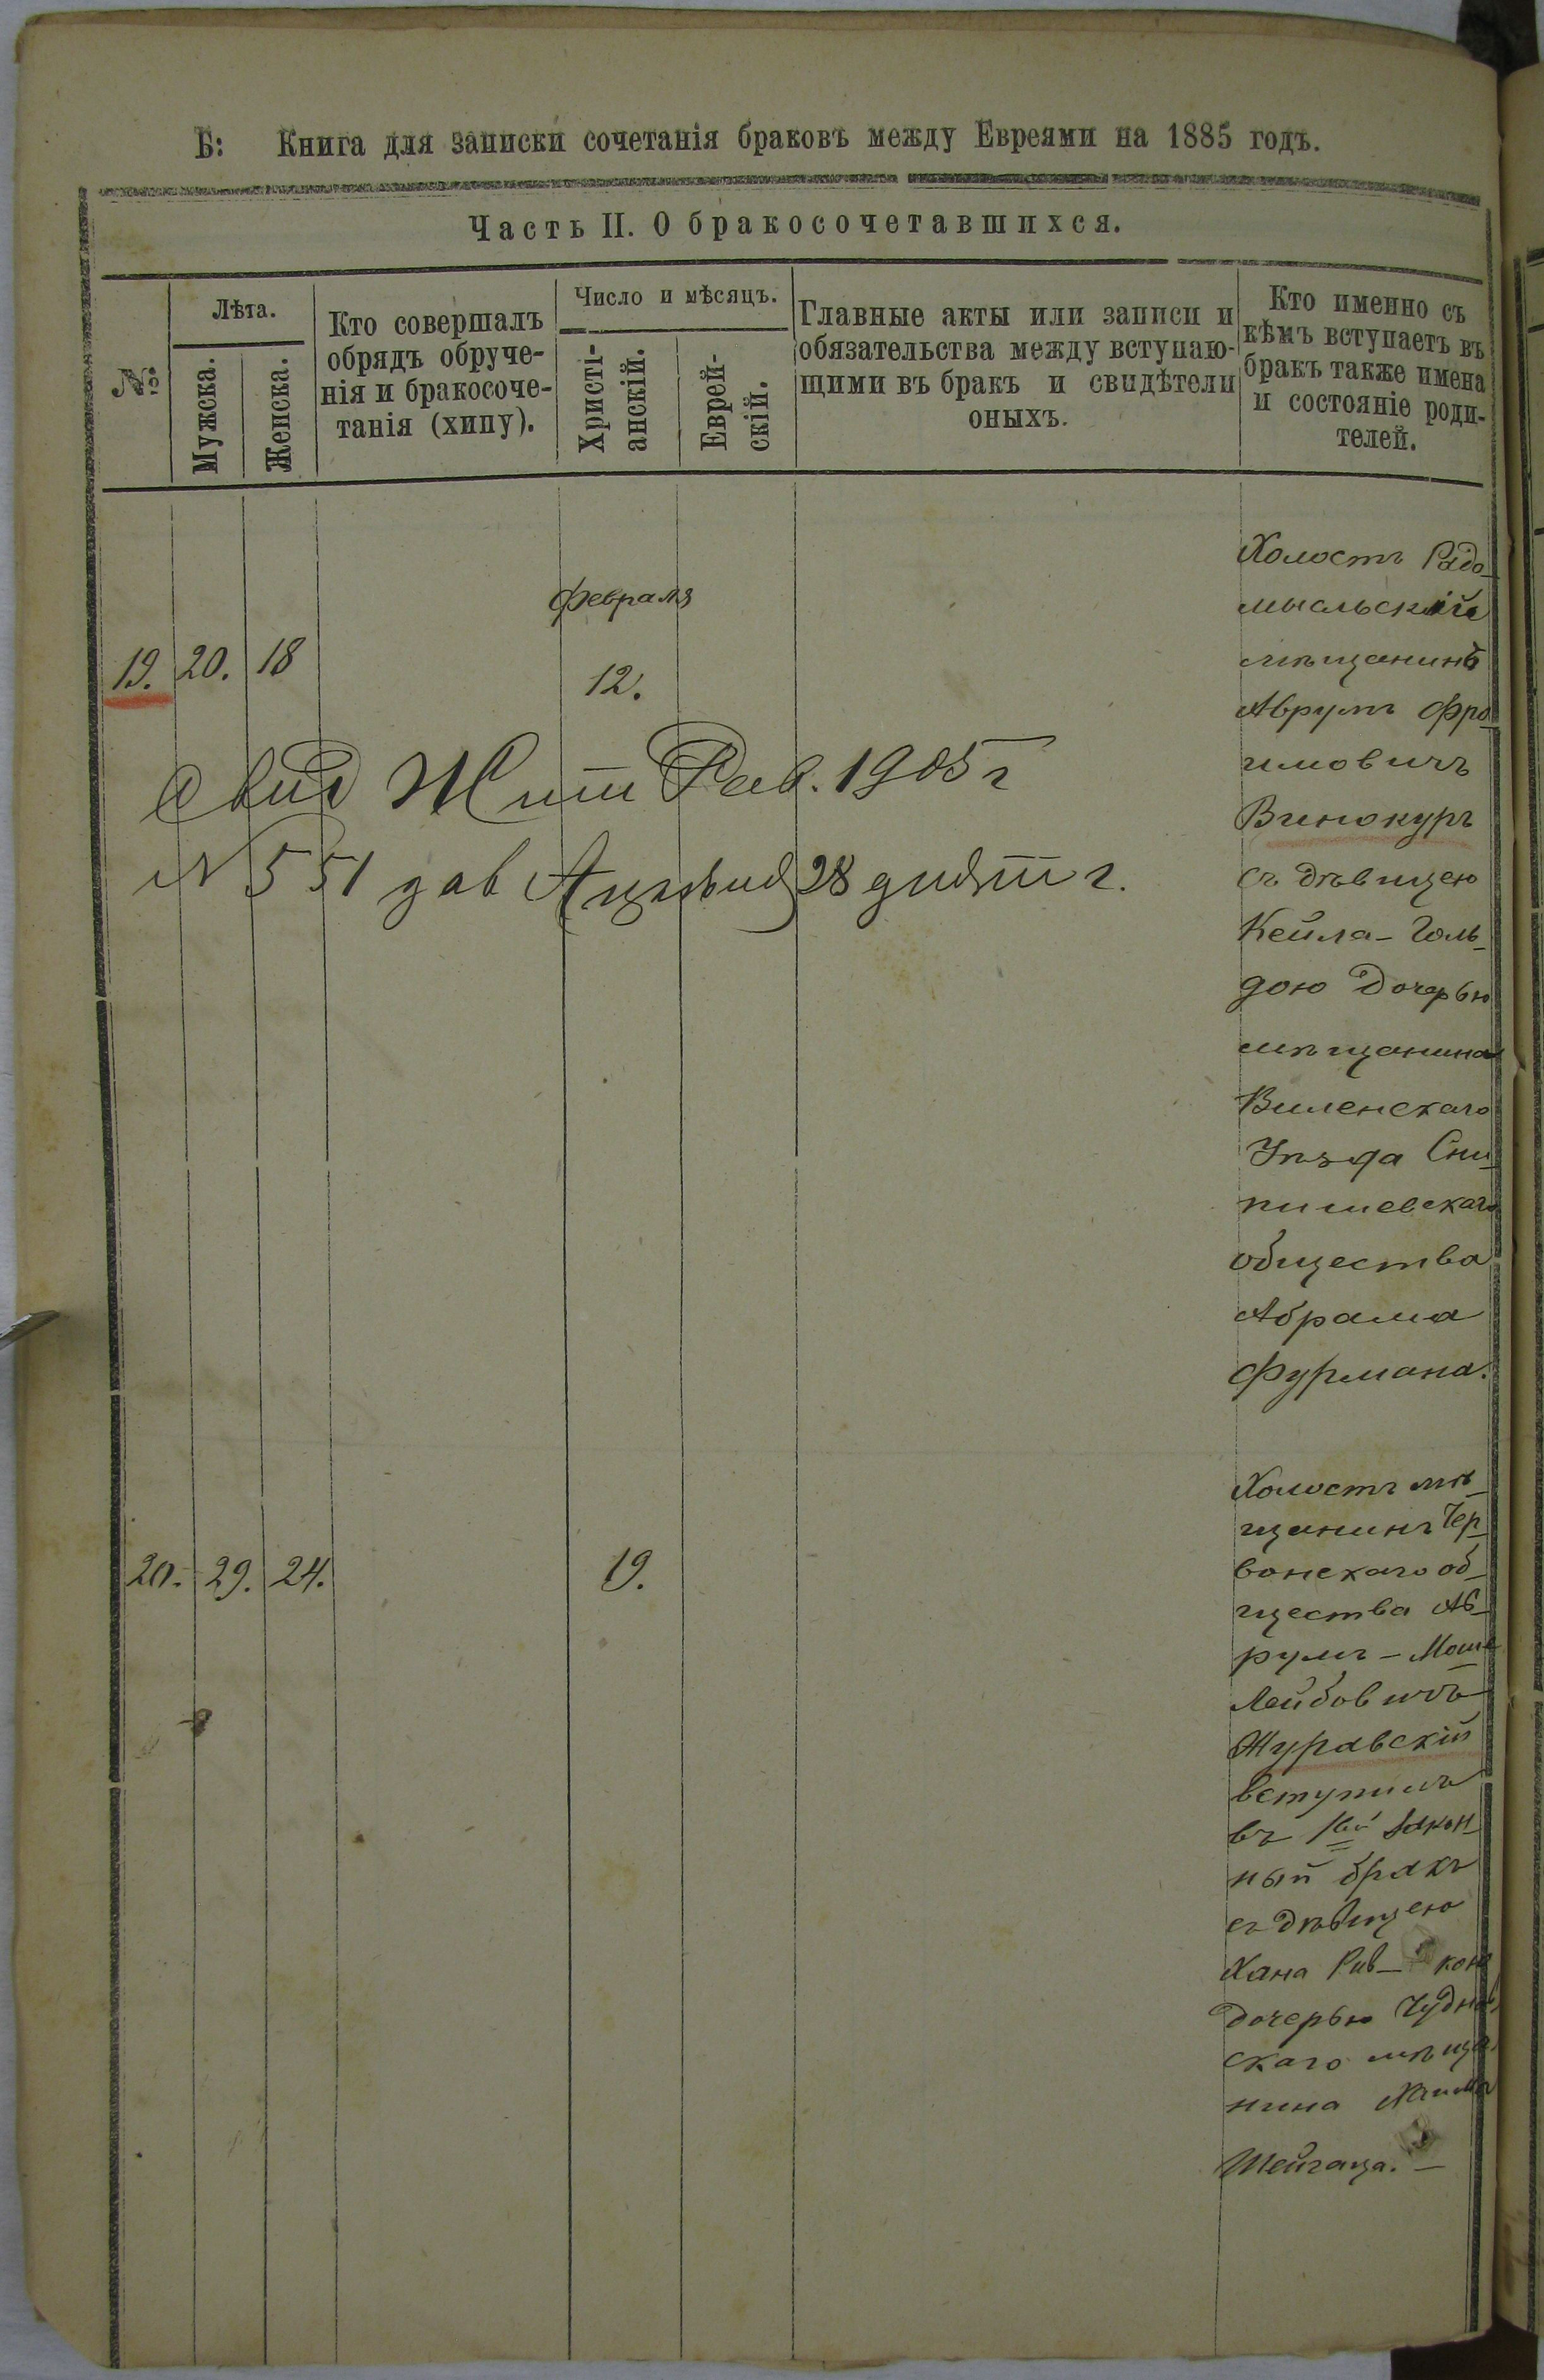 Б: Книга для записки сочетанія браковъ между Евреями на 1885 годъ.
Часть II. О бракосочетавшихся.
№
Лѣта.
Мужска.
Женска.
Кто совершалъ
обрядъ обруче-
нія и бракосоче-
танія (хипу).
Число и мѣсяцъ.
Христі-
анскій.
Еврей-
скій.
Главные акты или записи и
обязательства между вступаю-
щими въ бракъ и свидѣтели
оныхъ.
Кто именно съ
кѣмъ вступаетъ въ
бракъ также имена
и состояніе роди-
телей.
февраля
19. 20. 18 12.
Холостъ Радо-
мысльскій
мѣщанинъ
Аврумъ Фро-
имовичъ
Винокуръ
съ дѣвицею
Кейла-Голь-
дою дочерью
мѣщанина
Виленскаго
Уѣзда Сни-
пишевскаго
общества
Абрама
Фурмана.
Свид Жит Рав. 1905 г
N 551 28 г.
20. 29. 24. 19.
Холостъ мѣ-
щанинъ Чер-
вонскаго об-
щества Ав-
румъ-Мошъ
Лейбовичъ
Журавскій
вступилъ
въ 1ый закон-
ный бракъ
съ дѣвицею
Хана Рив-кою
дочерью Чуднов
скаго мѣща-
нина Хаима
Шейгаца.